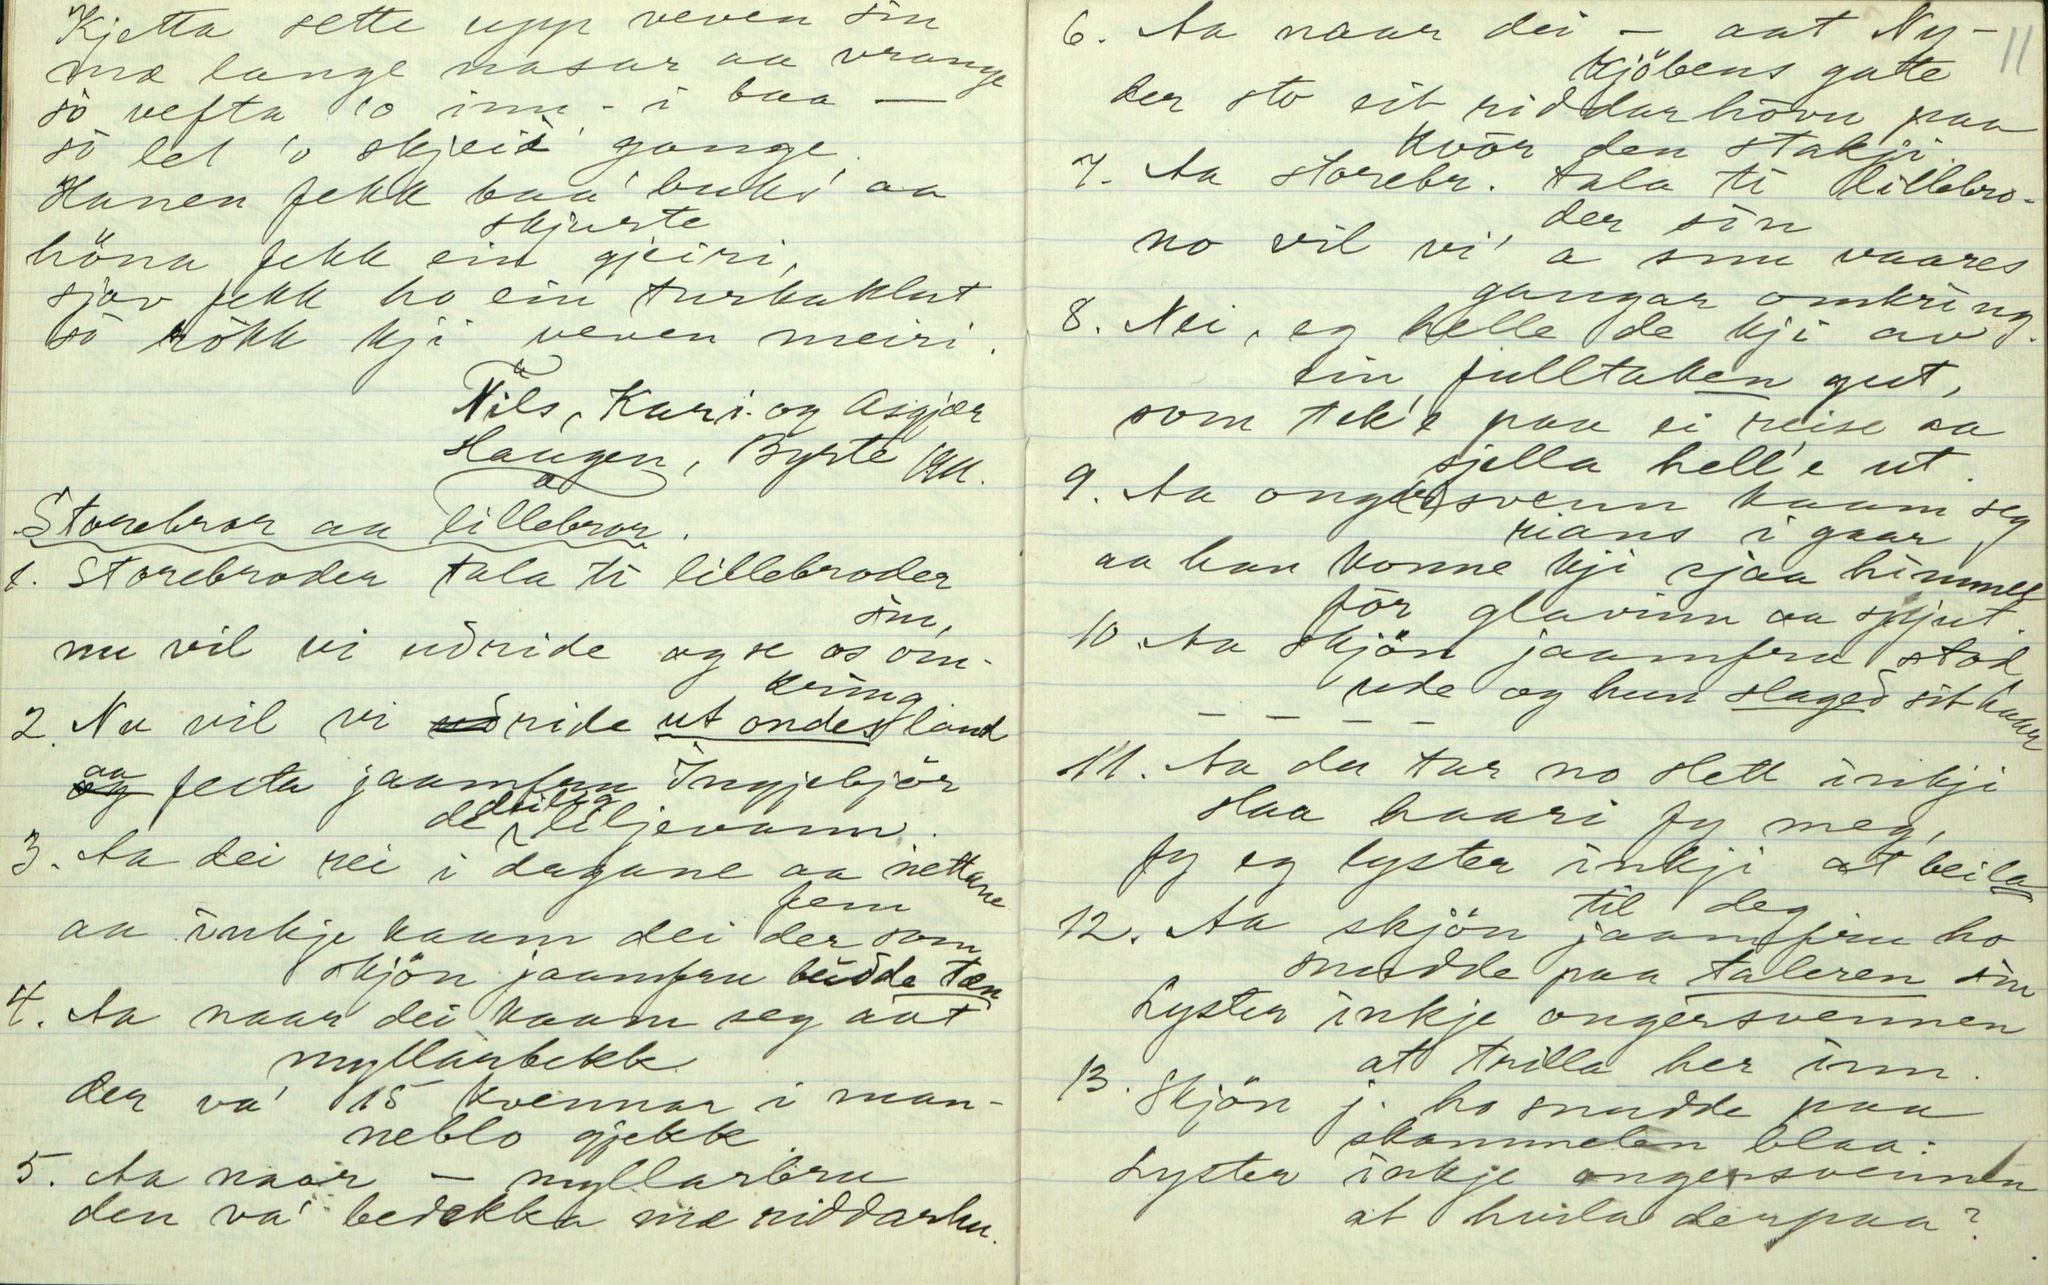 Kjetta sette upp veven sin
mæ lange nasar aa vrange
so vefta 'o inn - i baa —
so let 'o skjeiè gange.
Hanen fekk baa' buks' aa
skjurte
höna fekk ein gjeiri,
sjøv fekk ho ein turkaklut
so rökk kji veven meiri.
Nils, Kari og Asgjær
Haugen, Byrte 1911.
Storebror aa lillebror.
1. Storebroder tala ti lillebroder
sin,
nu vil vi udride og se os om-
kring
2. Nu vil vi ride ut ondes land
aa festa jaamfru Ingjebjör
de deilig liljevann.
3. Aa dei rei i dagane aa nettane
fem
aa inkje kaam dei der som
skjön jaamfru budde tæn
4. Aa naar dei kaam seg aat
myllarbekk
der va' 15 kvennar i man-
neblo gjekk.
5. Aa naar — myllarbru
den va' bedekka mæ riddarhu.
11
6. Aa naar dei — aat Ny-
kjöbens gatte
der sto eit riddarhövu paa
kvör den stakji
7. Aa storebr. tala ti lillebro-
der sin
no vil vi' a snu vaares
gangar omkring.
8. Nei, eg helle de kji av
ein fulltaken gut,
som tek'e paa ei reise aa
sjella hell'e ut.
9. Aa ong(er)svenn kaam seg
rians i gaar,
aa han konne kji sjaa himmel
för glavinn aa spjut.
10. Aa skjön jaamfru stod
ude og hun slaged sit haar
— — — —
11. Aa du tar no slett inkji
slaa haari fy meg,
fy eg lyster inkji at beila
til deg
12. Aa skjön jaamfru ho
snudde paa taleren sin
Lyster inkje ongersvennen
at trilla her inn.
13. Skjön j. ho snudde paa
skammelen blaa:
Lyster inkje ongersvennen
at huila derpaa?